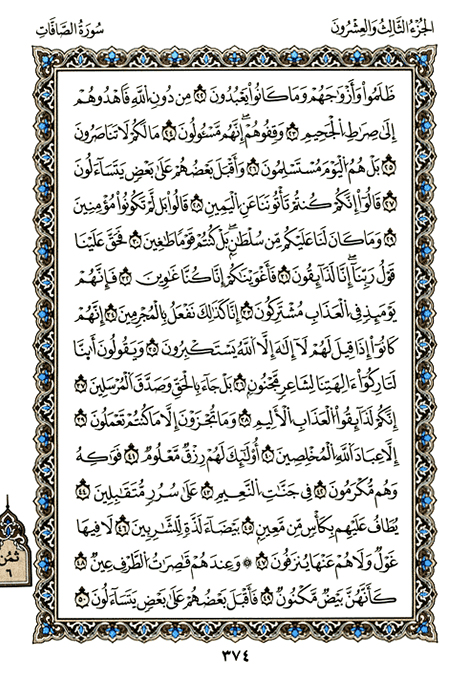 الجُزْءُ الثَّالِثُ وَالعِشْرُونَ
سُورَةُ الصَّافَّاتِ
ظَلَمُوا۟ وَأَزْوَٰجَهُمْ وَمَا كَانُوا۟ يَعْبُدُونَ ٢٢ مِن دُونِ ٱللَّهِ فَٱهْدُوهُمْ
إِلَىٰ صِرَٰطِ ٱلْجَحِيمِ ٢٣ وَقِفُوهُمْ ۖ إِنَّهُم مَّسْـُٔولُونَ ٢٤ مَا لَكُمْ لَا تَنَاصَرُونَ
٢٥ بَلْ هُمُ ٱلْيَوْمَ مُسْتَسْلِمُونَ ٢٦ وَأَقْبَلَ بَعْضُهُمْ عَلَىٰ بَعْضٍ يَتَسَآءَلُونَ
٢٧ قَالُوٓا۟ إِنَّكُمْ كُنتُمْ تَأْتُونَنَا عَنِ ٱلْيَمِينِ ٢٨ قَالُوا۟ بَل لَّمْ تَكُونُوا۟ مُؤْمِنِينَ
٢٩ وَمَا كَانَ لَنَا عَلَيْكُم مِّن سُلْطَٰنٍۭ ۖ بَلْ كُنتُمْ قَوْمًا طَٰغِينَ ٣٠ فَحَقَّ عَلَيْنَا
قَوْلُ رَبِّنَآ ۖ إِنَّا لَذَآئِقُونَ ٣١ فَأَغْوَيْنَٰكُمْ إِنَّا كُنَّا غَٰوِينَ ٣٢ فَإِنَّهُمْ
يَوْمَئِذٍ فِى ٱلْعَذَابِ مُشْتَرِكُونَ ٣٣ إِنَّا كَذَٰلِكَ نَفْعَلُ بِٱلْمُجْرِمِينَ ٣٤ إِنَّهُمْ
كَانُوٓا۟ إِذَا قِيلَ لَهُمْ لَآ إِلَٰهَ إِلَّا ٱللَّهُ يَسْتَكْبِرُونَ ٣٥ وَيَقُولُونَ أَئِنَّا
لَتَارِكُوٓا۟ ءَالِهَتِنَا لِشَاعِرٍ مَّجْنُونٍۭ ٣٦ بَلْ جَآءَ بِٱلْحَقِّ وَصَدَّقَ ٱلْمُرْسَلِينَ ٣٧
إِنَّكُمْ لَذَآئِقُوا۟ ٱلْعَذَابِ ٱلْأَلِيمِ ٣٨ وَمَا تُجْزَوْنَ إِلَّا مَا كُنتُمْ تَعْمَلُونَ ٣٩
إِلَّا عِبَادَ ٱللَّهِ ٱلْمُخْلَصِينَ ٤٠ أُو۟لَٰٓئِكَ لَهُمْ رِزْقٌ مَّعْلُومٌ ٤١ فَوَٰكِهُ
وَهُم مُّكْرَمُونَ ٤٢ فِى جَنَّٰتِ ٱلنَّعِيمِ ٤٣ عَلَىٰ سُرُرٍ مُّتَقَٰبِلِينَ ٤٤
يُطَافُ عَلَيْهِم بِكَأْسٍ مِّن مَّعِينٍۭ ٤٥ بَيْضَآءَ لَذَّةٍ لِّلشَّٰرِبِينَ ٤٦ لَا فِيهَا
غَوْلٌ وَلَا هُمْ عَنْهَا يُنزَفُونَ ٤٧ ۞ وَعِندَهُمْ قَٰصِرَٰتُ ٱلطَّرْفِ عِينٌ ٤٨
كَأَنَّهُنَّ بَيْضٌ مَّكْنُونٌ ٤٩ فَأَقْبَلَ بَعْضُهُمْ عَلَىٰ بَعْضٍ يَتَسَآءَلُونَ ٥٠
ثُمُن
٦
٣٧٤